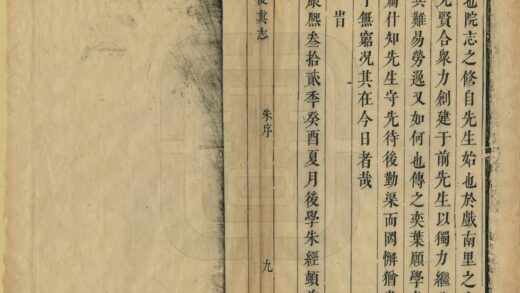 院志之修自先生始也於戲南里之
賢合眾力創建于前先生以獨力繼
難易勞逸又如何也傳之奕葉願學
什知先生守先待後勤渠而罔懈猶
無窮況其在今日者哉
旹
康熙叁拾貳季癸酉夏月後學朱經頓
志
朱序
九